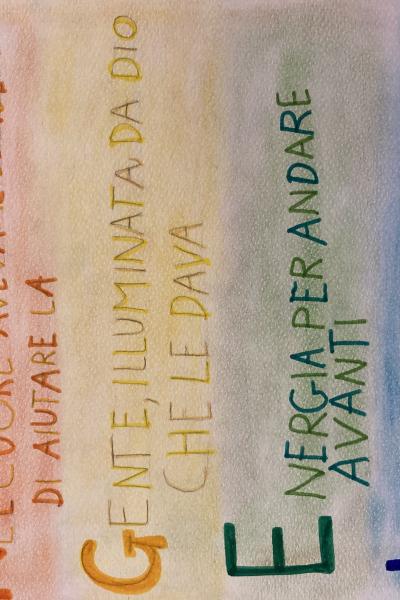 NEL CUORE AVEVA
DI AIUTARE LA
GENTE, ILLUMINATA DA DIO
CHE LE DAVA
ENERGIA PER ANDARE
AVANTI